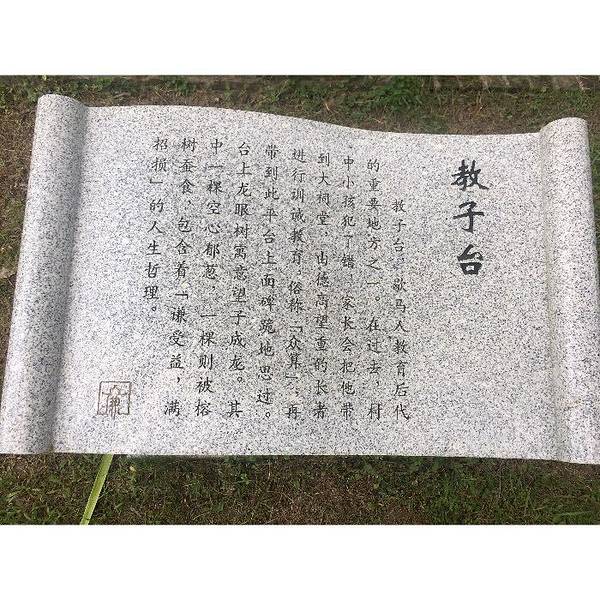 教子台
教子台，歇马人教育后代
的重要地方之一。在过去，村
中小孩犯了错，家长会把他带
到大祠堂，由德高望重的长者
进行训诫教育，俗称「众算」，再
带到此平台上面碑跪地思过。
台上龙眼树寓意望子成龙。其
中一棵空心郁葱，一棵则被榕
树蚕食，包含着「谦受益，满
招损」的人生哲理。」